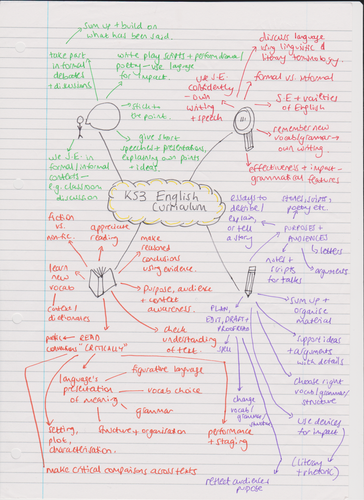 sum up + build on
what has been said.
take part
in formal
debates
+ discussions
write play scripts + perform drama/
poetry - use language
for impact.
stick to
the point.
give short
speeches + presentations,
explaining own points
+ ideas.
use S.E. in
formal/informal
contexts -
e.g. classroom
discussion
discuss language
using linguistic &
literary terminology.
use S.E.
confidently
- own
writing
+ speech
formal vs. informal
S.E + varieties
of English
remember new
vocab/grammar ->
own writing.
effectiveness + impact -
grammatical features
KS3 English
Curriculum
fiction
vs.
non-fic.
appreciate
reading
make
reasoned
conclusions
using evidence.
learn
new
vocab
context/
dictionaries
purpose, audience
+ context
awareness.
check
understanding
of text.
READ
"CRITICALLY"
figurative language
language's
presentation
of meaning
vocab choice
grammar
setting,
plot,
characterisation.
structure + organisation
performance
+ staging
make critical comparisons across texts
essays to
describe/
explain
or tell
a story
stories, scripts,
poetry etc.
purposes +
AUDIENCES
letters
arguments
notes +
scripts
for talks
PLAN,
EDIT, DRAFT +
PROOFREAD
spell
sum up +
organise
material
support ideas
+ arguments
with details
choose right
vocab/grammar/
structure
use devices
for impact
(literary
+ rhetoric)
change
vocab/
grammar/
structure
reflect audience +
purpose